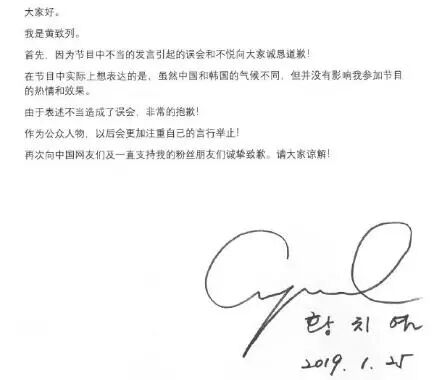 大家好。
我是黄致列。
首先，因为节目中不当的发言引起的误会和不悦向大家诚恳道歉！
在节目中实际上想表达的是、虽然中国和韩国的气候不同，但并没有影响我参加节目
的热情和效果。
由于表述不当造成了误会，非常的抱歉！
作为公众人物，以后会更加注重自己的言行举止！
再次向中国网友们及一直支持我的粉丝朋友们诚挚致歉。请大家谅解！
황치열
2019. 1. 25